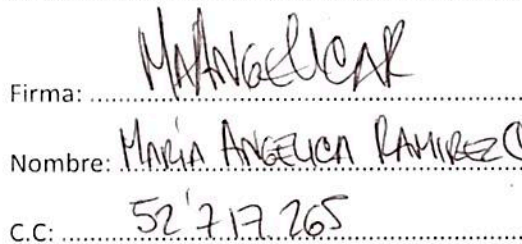 Firma: MAANGELICAR
Nombre: MARÍA ANGELICA RAMIREZ C
C.C: 52'717.265